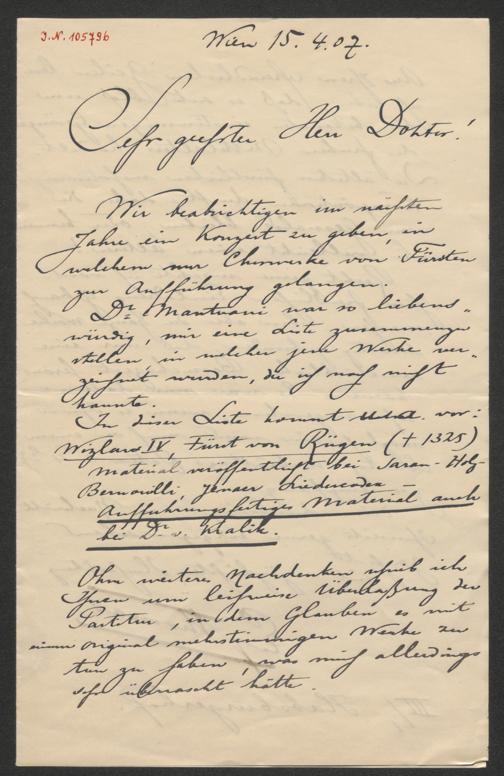 I.N. 105796
Wien 15.4.07.
Sehr geehrter Herr Doktor!
Wir beabsichtigen im nächsten
Jahre ein Konzert zu geben, in
welchem nur Chorwerke von Fürsten
zur Aufführung gelangen.
Dr. Mantuani war so liebens„
würdig, mir eine Liste zusammenzu
stellen in welcher jene Werke ver„
zeichnet wurden, die ich noch nicht
kannte.
In dieser Liste kommt vor:
Wizlaw IV, Fürst von Rügen († 1325)
Material veröffentlicht bei Saran-Holz-
Bernoulli, Jenaer Liedercodex –
Aufführungsfertiges Material auch
bei Dr. v. Kralik.
Ohne weiteres Nachdenken schrieb ich
Ihnen um leihweise Überlaßung der
Partitur, in dem Glauben es mit
einem original mehrstimmigen Werke zu
tun zu haben, was mich allerdings
sehr überrascht hätte.